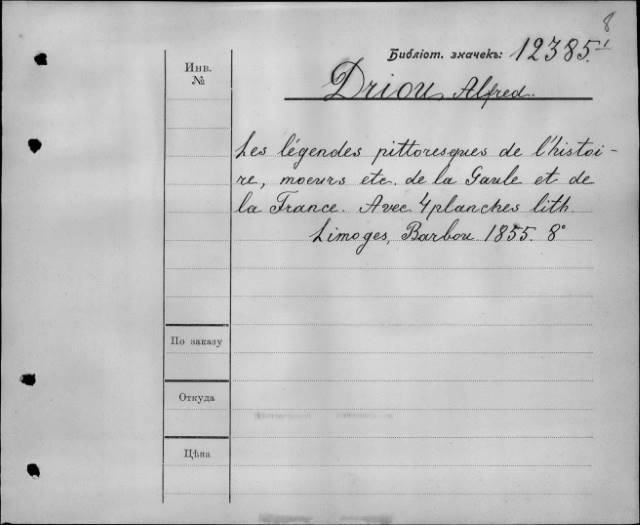 8
Библіот. значекъ: 12385.1
Инв. №
Driou, Alfred.
Les légendes pittoresques de l'histoi-
re, moeurs etc. de la Gaule et de
la France. Avec 4 planches lith.
Limoges, Barbou 1855. 8°
По заказу
Откуда
Цѣна